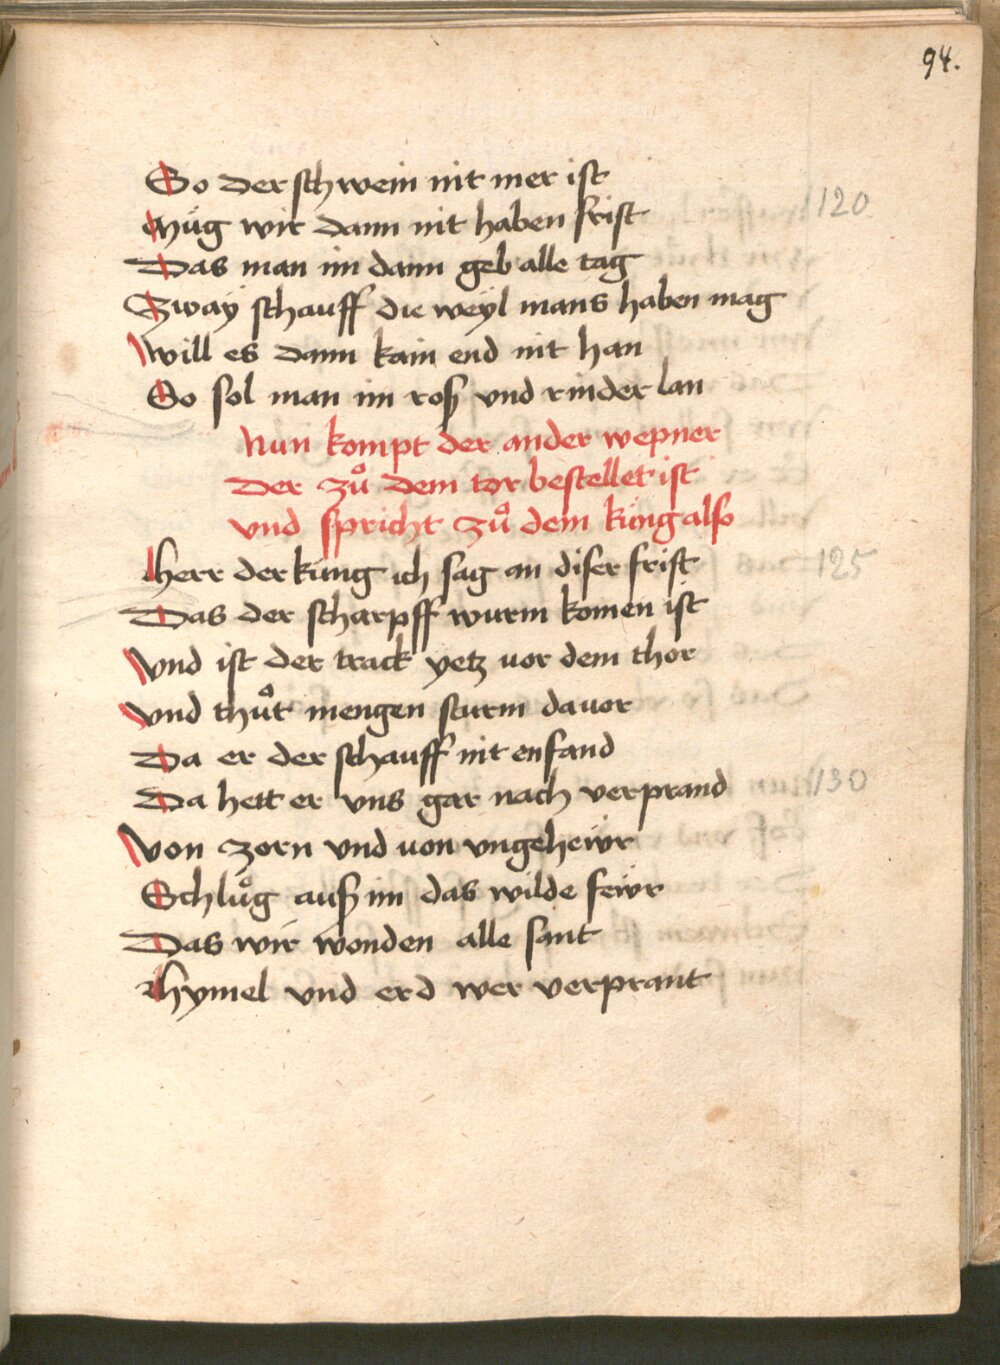 94.
So der schwein nit mer ist
Müg wir dann nit haben frist
120
Das man im dann geb alle tag
Zway schauff die weyl mans haben mag
Will es dann kain end nit han
So sol man im roß vnd rinder lan
Nun kompt der ander wepner
Der zuͦ dem tor bestellet ist
vnd spricht zuͦ dem küng also
Herr der küng ich sag an diser frist
125
Das der scharpff wurm komen ist
Vnd ist der track yetz vor dem thor
Vnd thuͦt mengen sturm davor
Da er der schauff nit enfand
Da hett er vns gar nach verprand
130
Von zorn vnd von vngeheẅr
Schluͦg auß im das wilde feẅr
Das wir wonden alle sant
Hymel vnd erd wer verprant